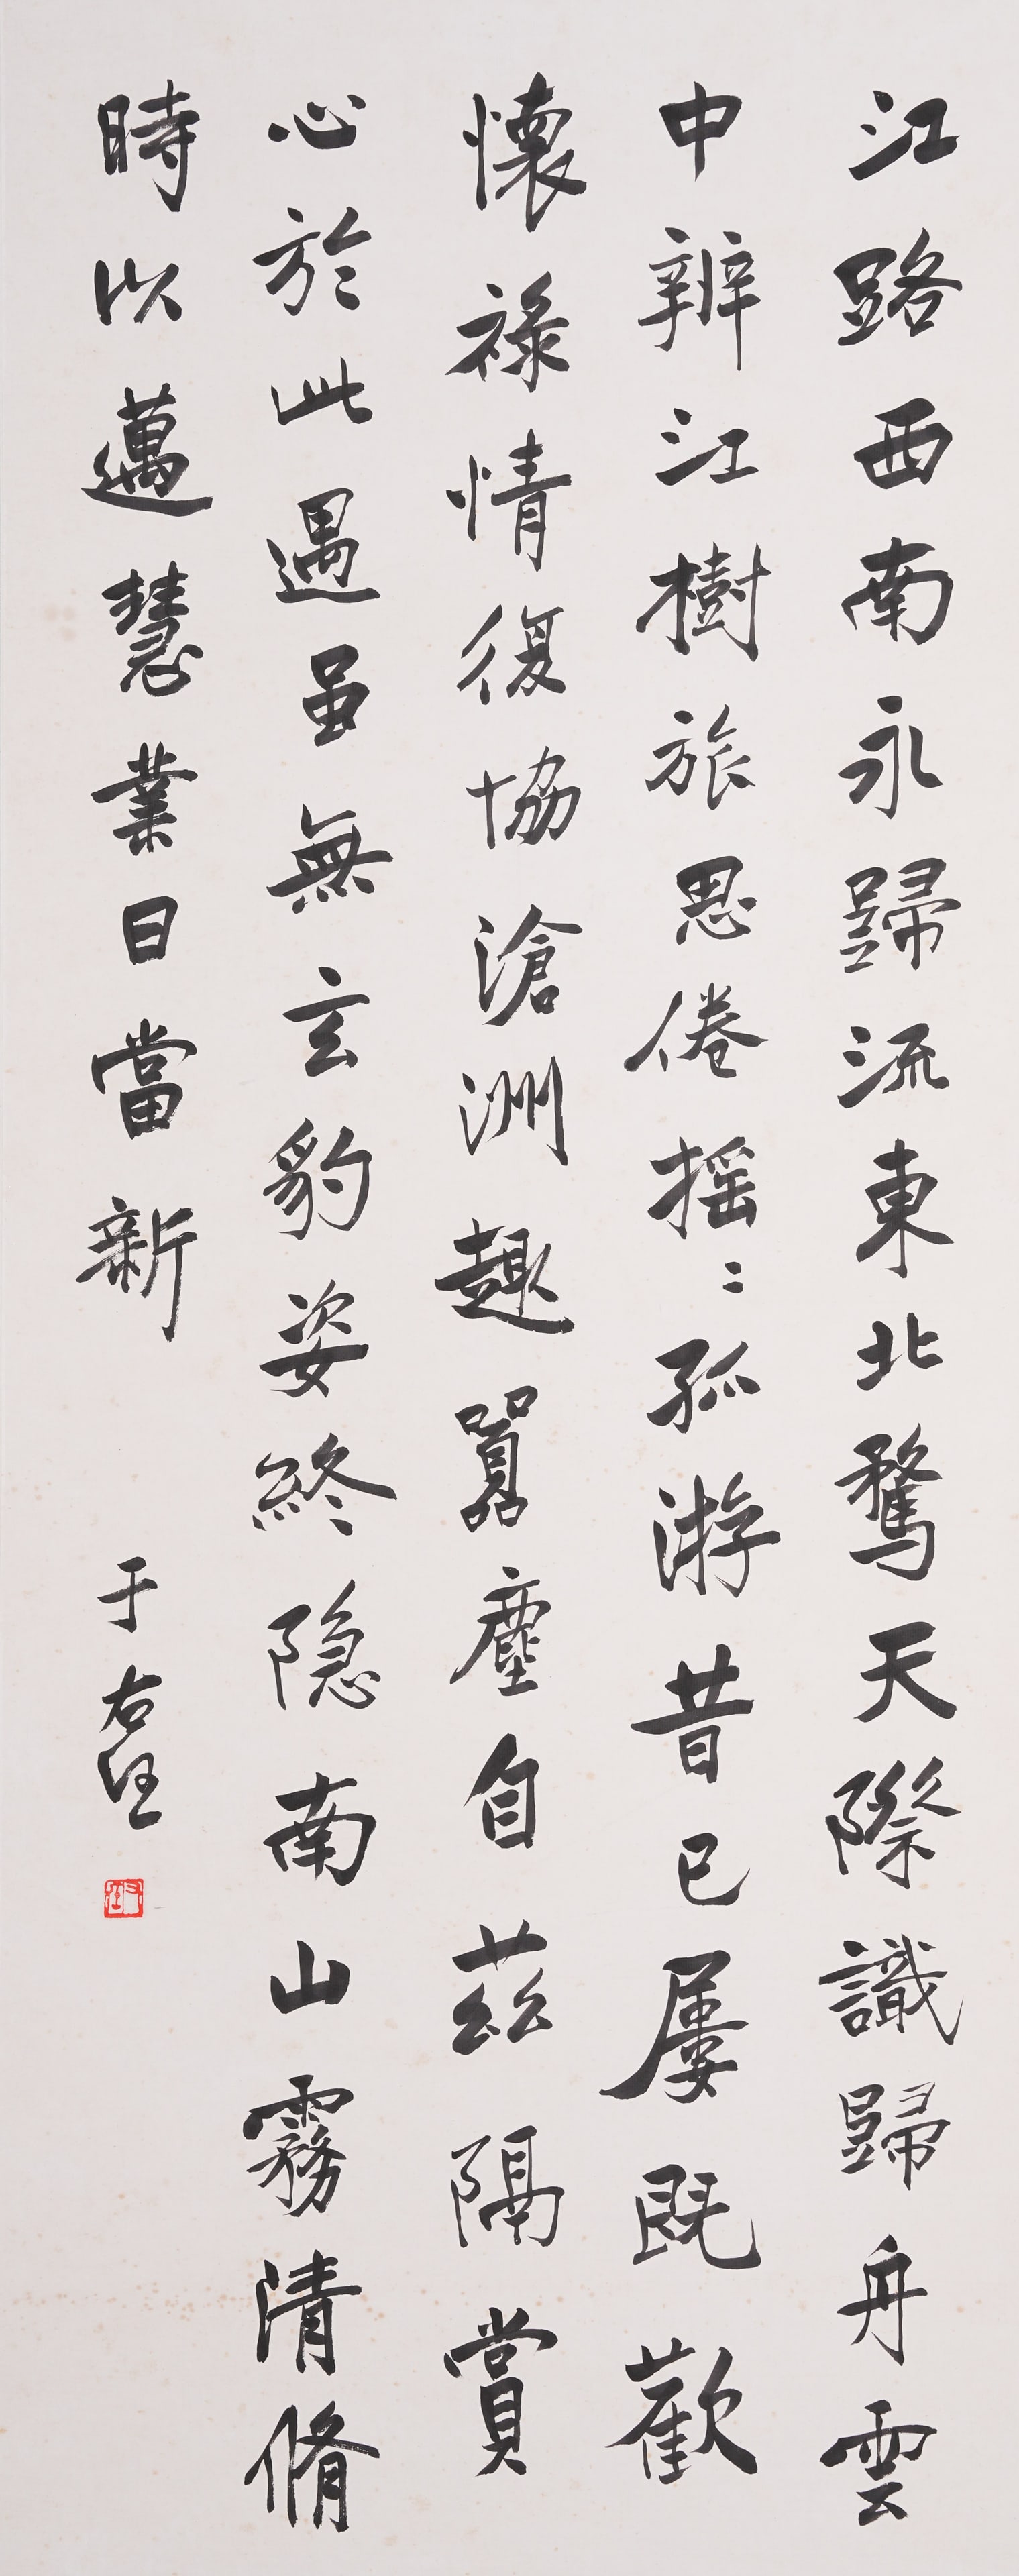 江路西南永歸流東北騖天際識歸舟雲
中辨江樹旅思倦摇〻孤游昔已屢既歡
懷祿情復協滄洲趣囂塵自茲隔賞
心於此遇虽無玄豹姿終隐南山霧清脩
時以邁慧業日當新
于右任
右任